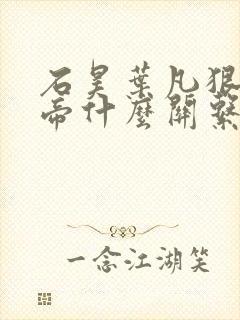 石昊葉凡狠
帝什麼關繫
一念江湖笑